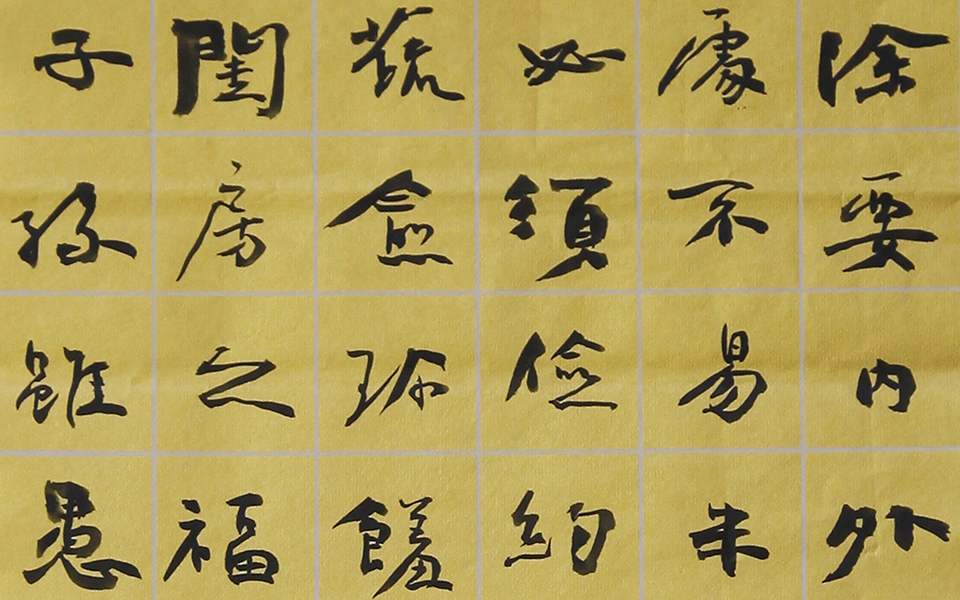 除要内外
處不易半
必須儉約
蔬愈珍饈
閨房之福
子孫雖愚